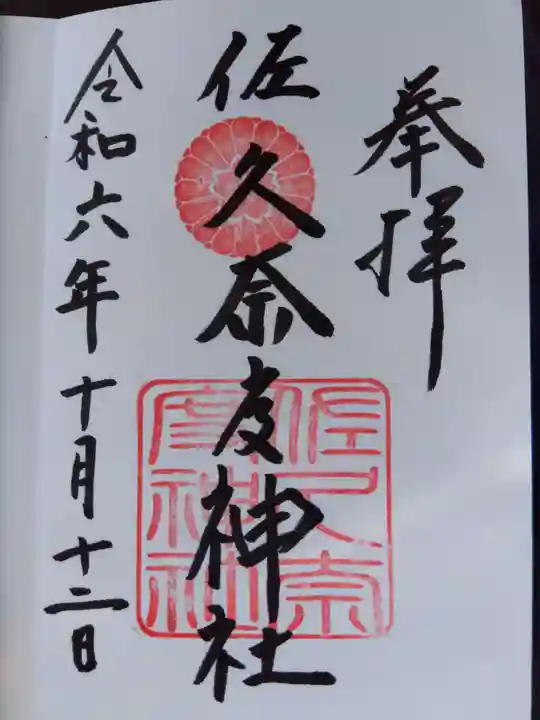 奉拝
佐久奈度神社
佐久奈
度神社
令和六年十月十二日